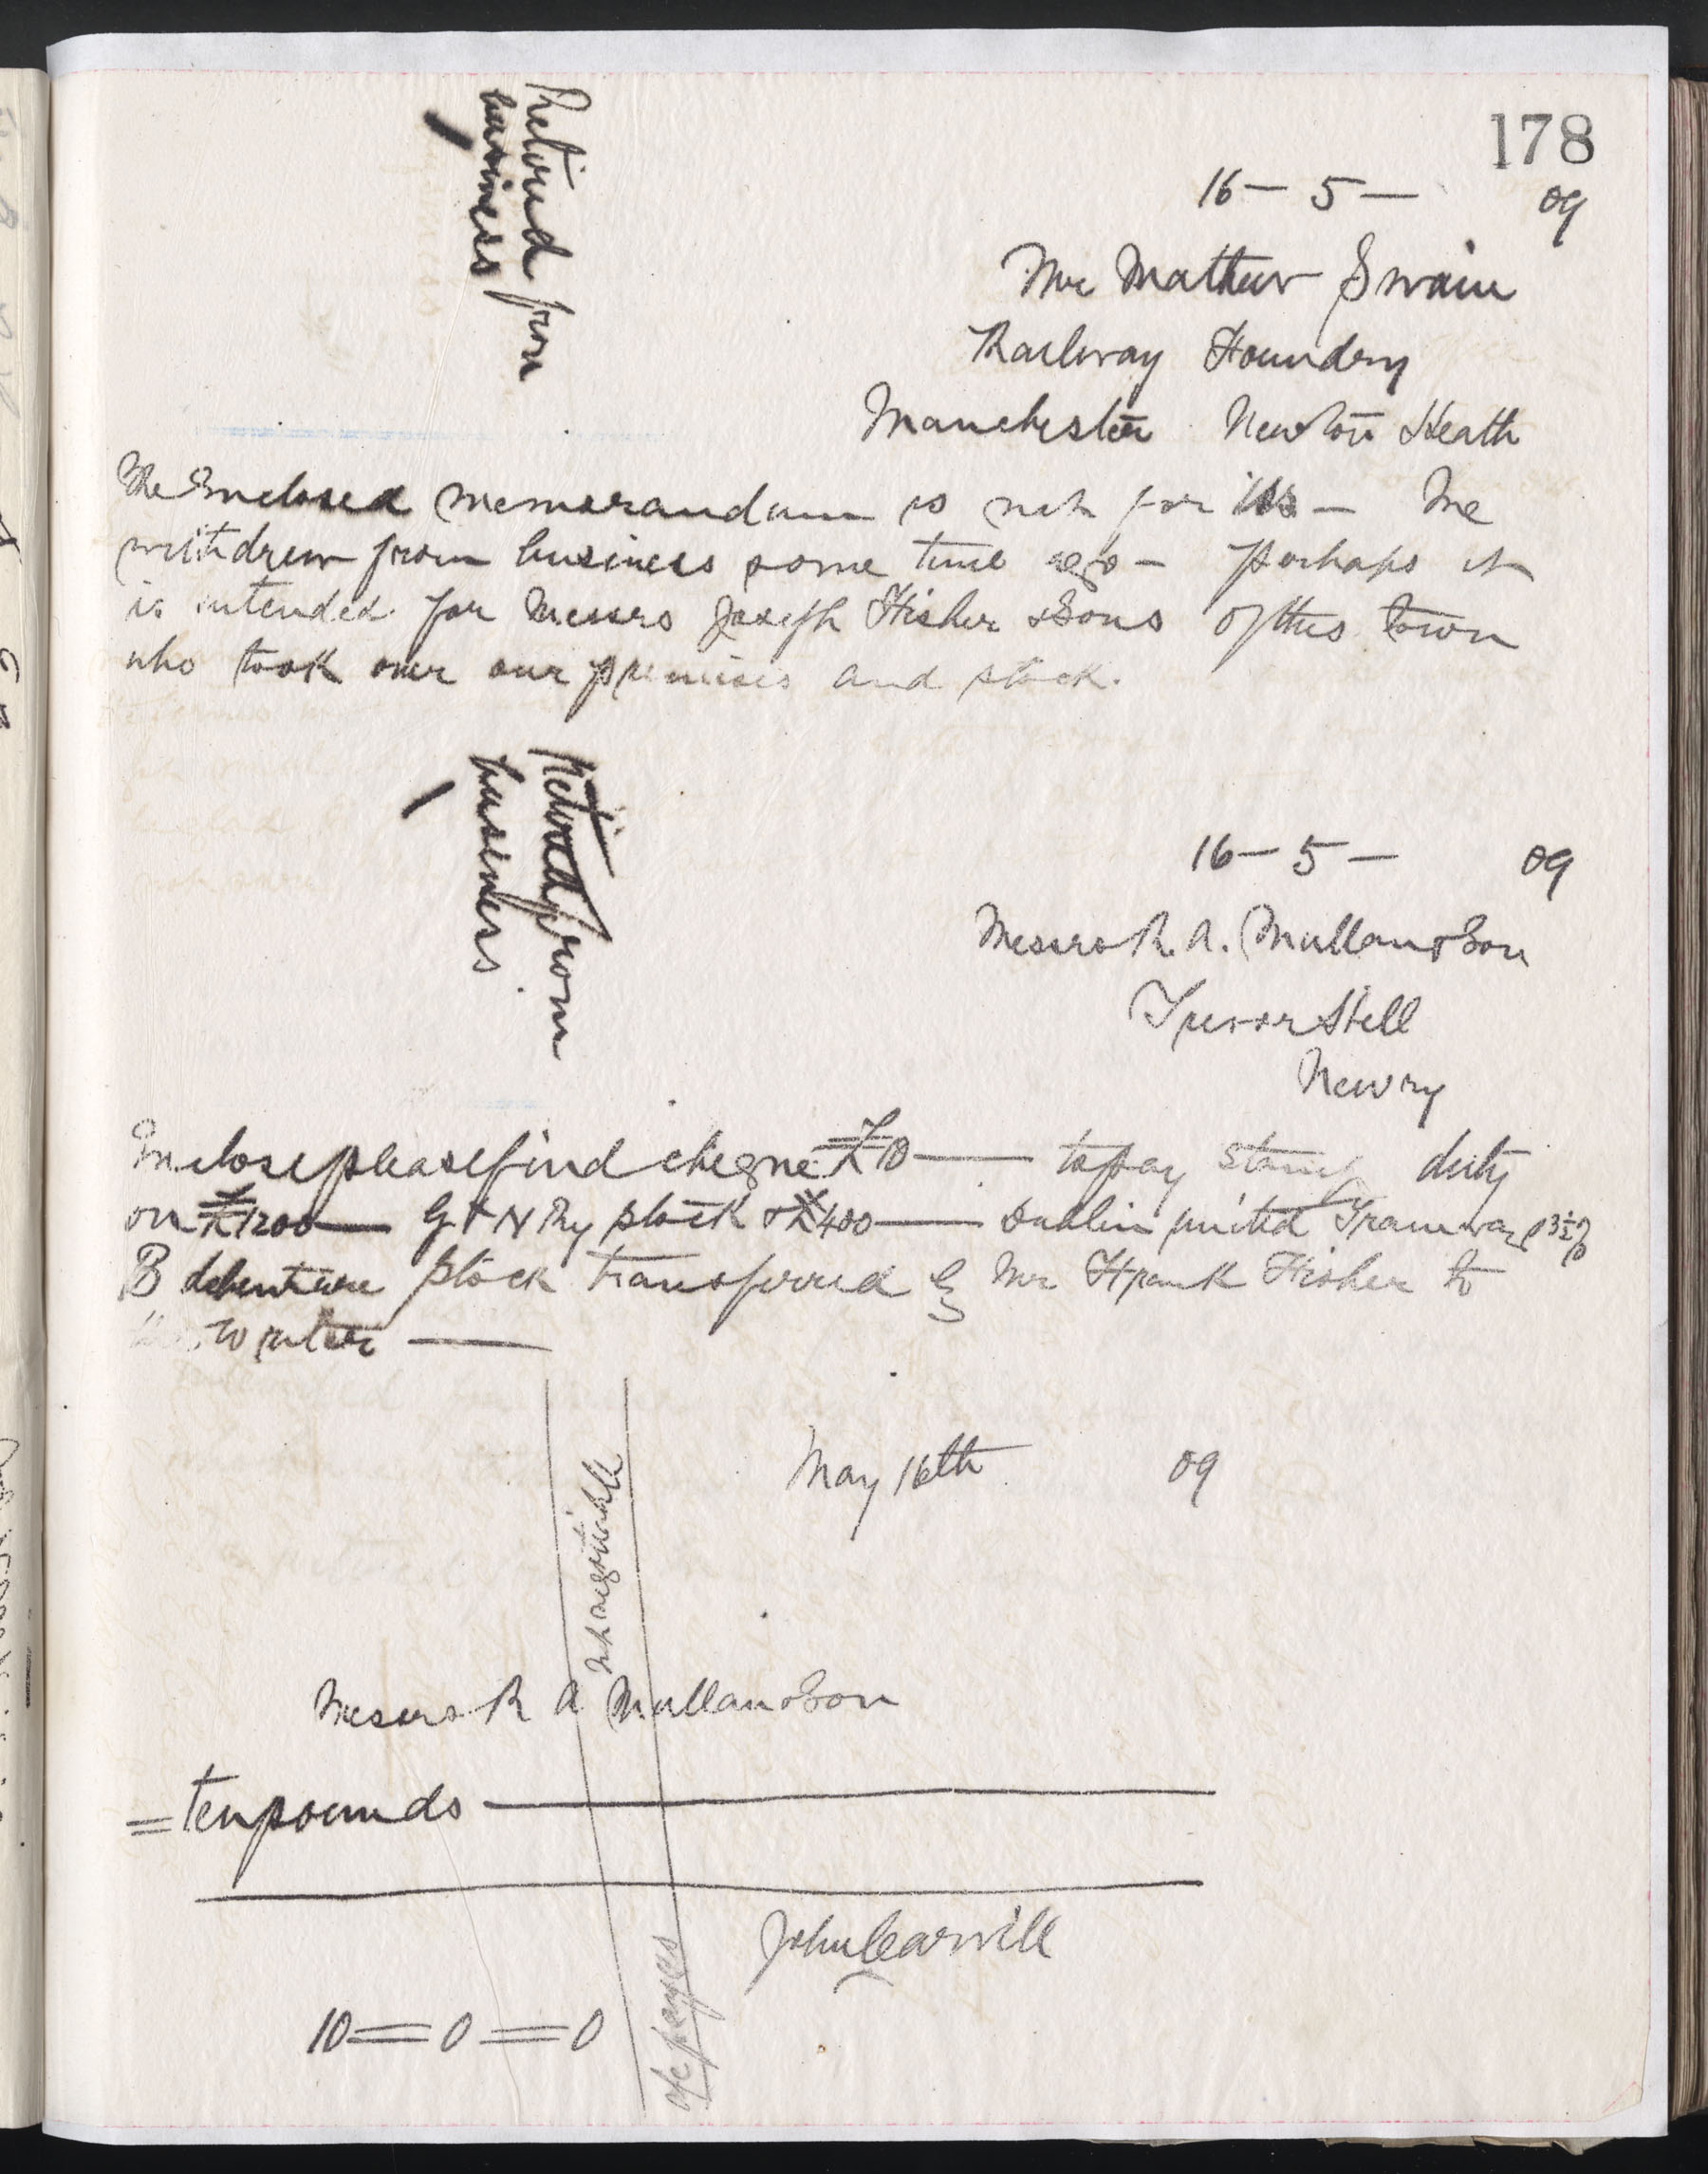 178
Retired from
business
16 – 5 – 09
Mr Mathew Swain
Railway Foundry
Manchester Newton Heath
The Enclosed memorandum is not for us – We
withdrew from business some time ago – Perhaps it
is intended for Messrs Joseph Fisher & Sons of this town
who took over our premises and stock.
Retired from
business
16 – 5 – 09
Messrs R. A. Mullan & Son
Trevor Hill
Newry
Enclose please find cheque £10 —— to pay stamp duty
on £1200 —— G & N Ry stock & £400 —— Dublin united Tramways 3½ %
B debenture stock transferred by Mr Frank Fisher to
the writer ——
May 16th 09
Not negotiable
Messrs R A Mullan & Son
= ten pounds ——
John Carvill
10 = 0 = 0
a/c payees